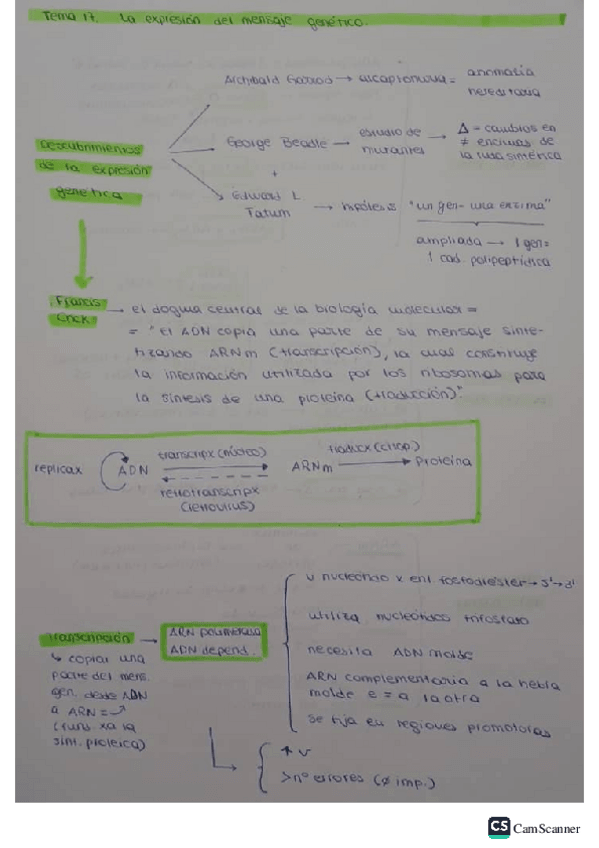 Tema 17. La expresión del mensaje genético.
Archibald Garrod → alcaptonuria = anomalía
hereditaria
Descubrimientos
de la expresión
genética
George Beadle → estudio de
mutantes → Δ = cambios en
≠ enzimas de
la ruta sintética
+
Edward L.
Tatum → hipótesis "un gen- una enzima"
ampliada → 1 gen=
1 cad. polipeptídica
Francis
Crick → el dogma central de la biología molecular =
= "el ADN copia una parte de su mensaje sinte-
tizando ARNm (transcripción), la cual constituye
la información utilizada por los ribosomas para
la síntesis de una proteína (traducción)".
replicax ADN transcripx (núcleo) ARNm traducx (citop.) Proteína
retrotranscripx
(retrovirus)
Transcripción → ARN polimerasa
ADN depend.
↳ copiar una
parte del mens.
gen. desde ADN
a ARN =
(funs. xa la
sint. proteica)
U nucleótido x enl. fosfodiéster → 5'→3'
utiliza nucleótidos trifosfato
necesita ADN molde
ARN complementaria a la hebra
molde e = a la otra
se fija en regiones promotoras
↑ v
>nº errores (∅ imp.)
CS CamScanner